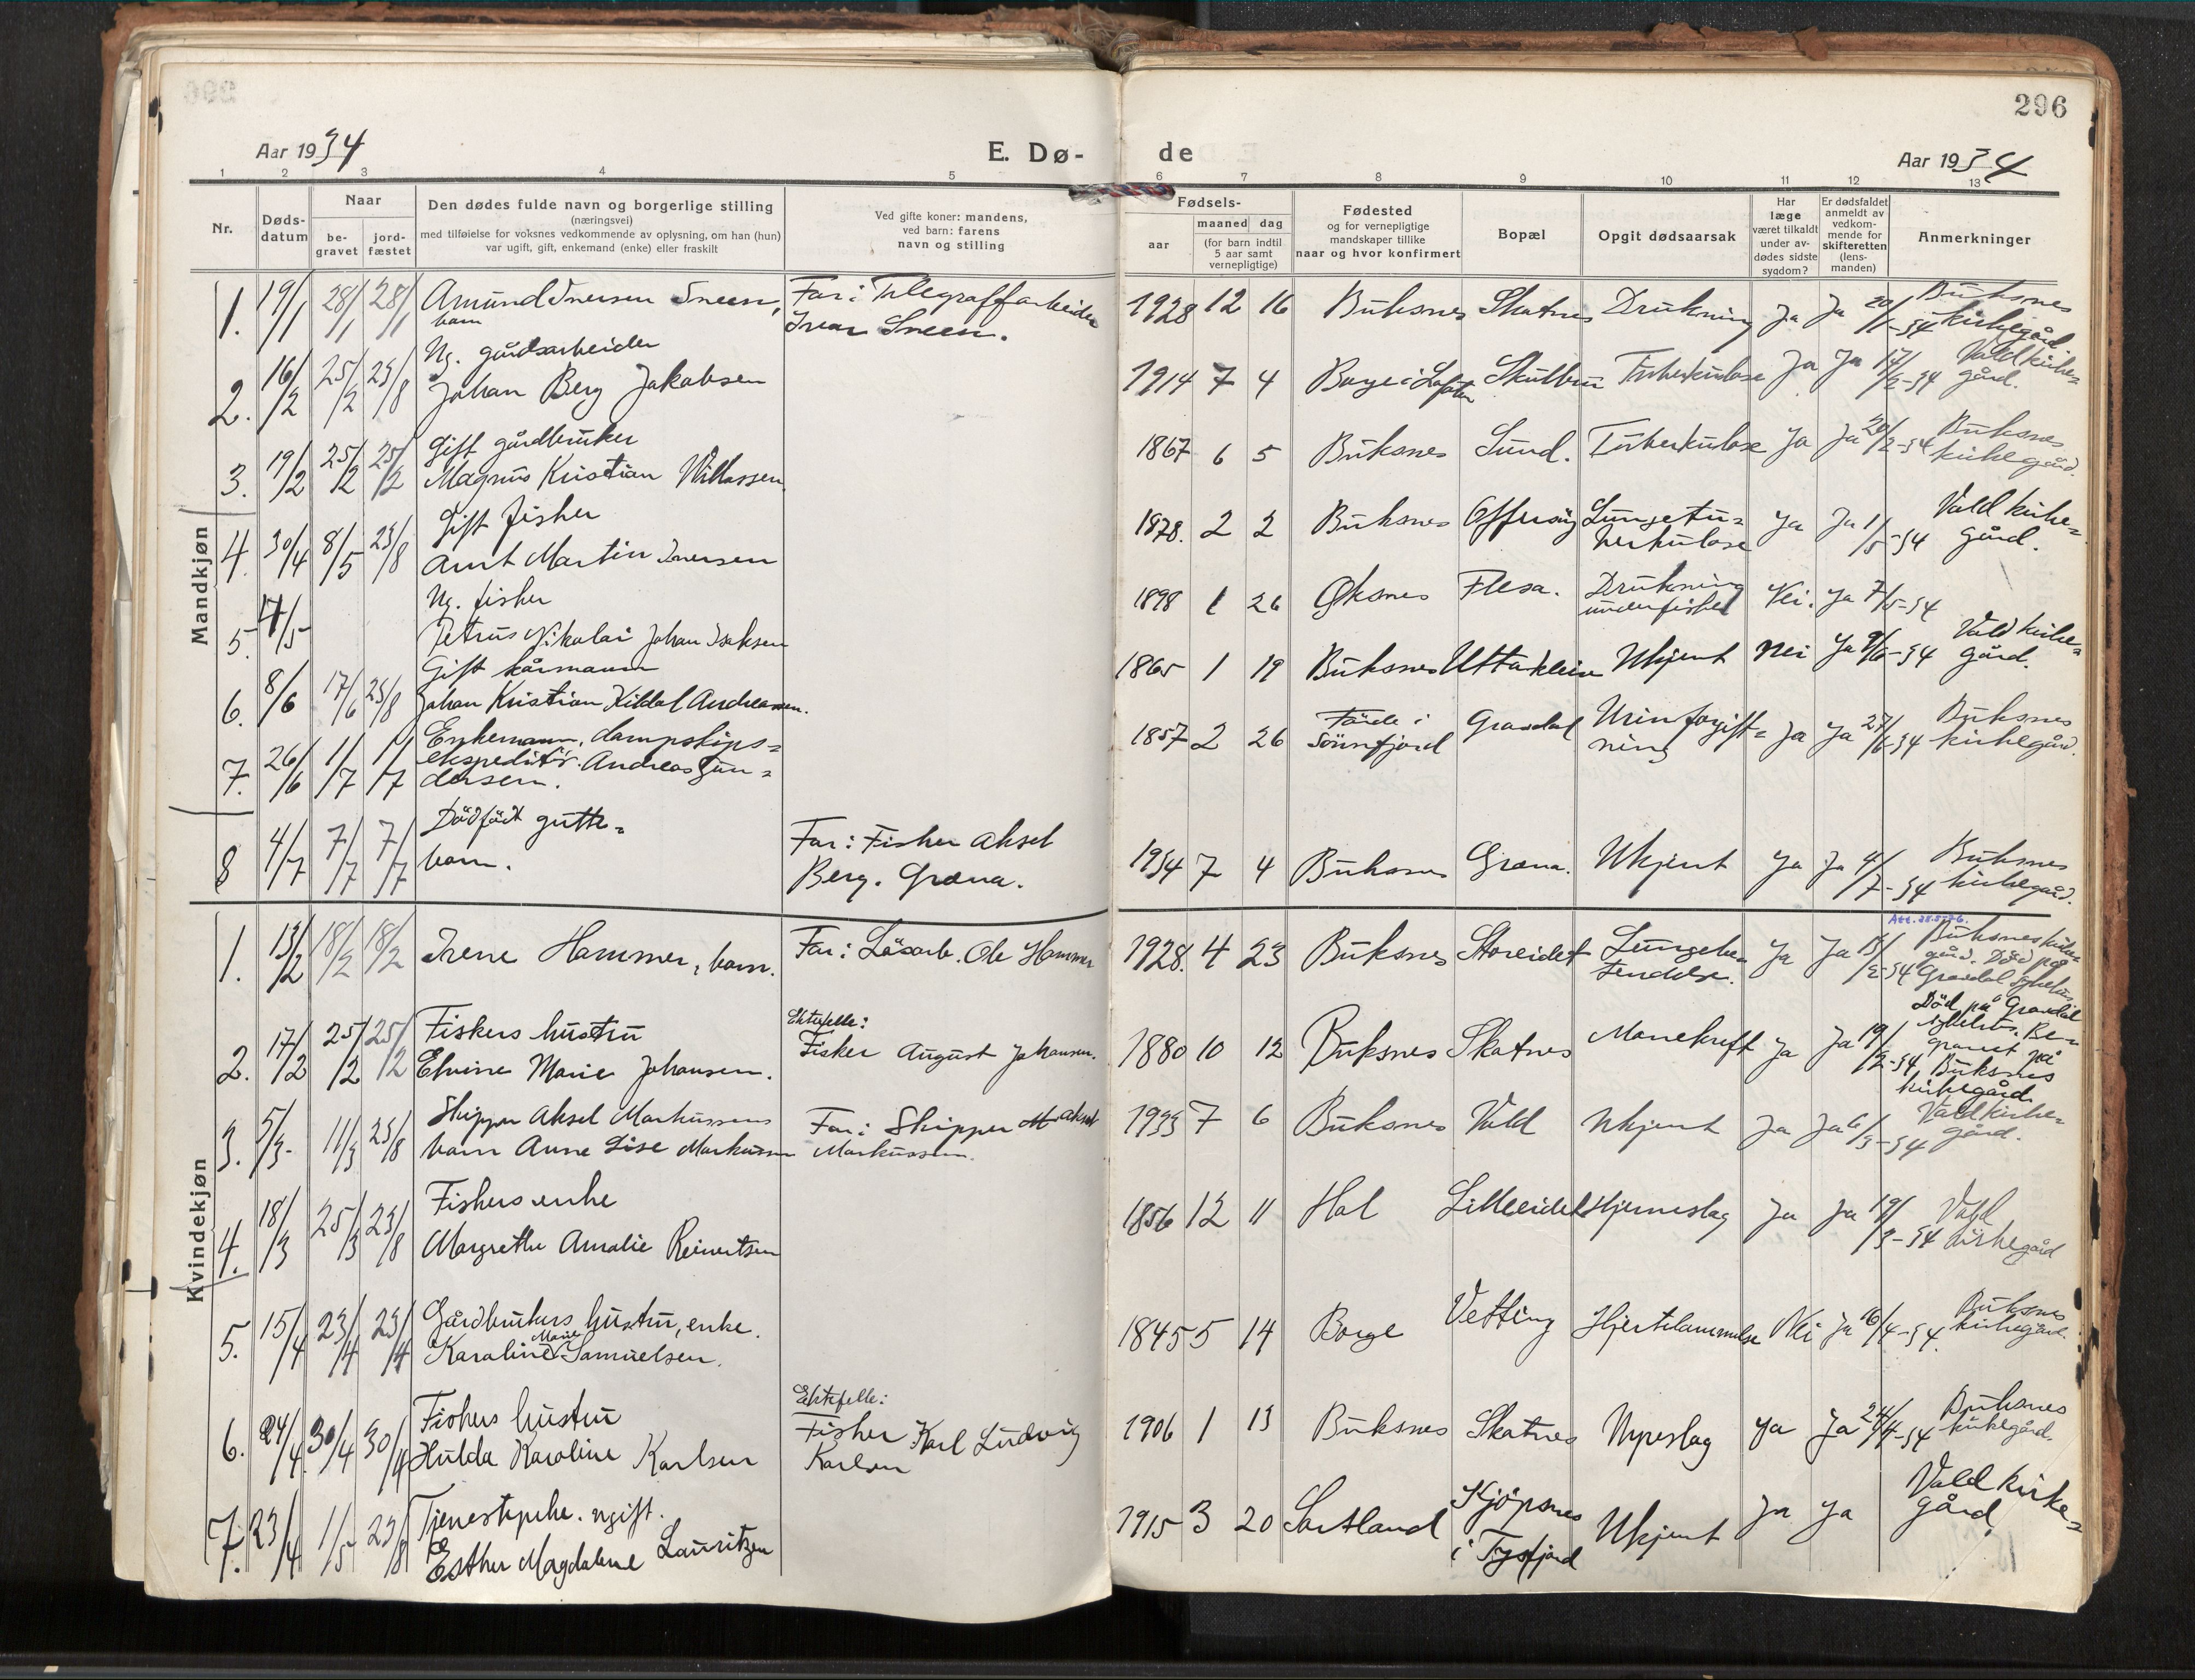 296
Aar 1934
E. Dø-
de
Aar 1934
1 2 3 4 5 6 7 8 9 10 11 12 13
Nr.
Døds-
datum
Naar
be-
gravet
jord-
fæstet
Den dødes fulde navn og borgerlige stilling
(næringsvei)
med tilføielse for voksnes vedkommende av oplysning, om han (hun)
var ugift, gift, enkemand (enke) eller fraskilt
Ved gifte koner: mandens,
ved barn: farens
navn og stilling
Fødsels-
aar
maaned dag
(for barn indtil
5 aar samt
vernepligtige)
Fødested
og for vernepligtige
mandskaper tillike
naar og hvor konfirmert
Bopæl
Opgit dødsaarsak
Har
læge
været tilkaldt
under av-
dødes sidste
sygdom?
Er dødsfaldet
anmeldt av
vedkom-
mende for
skifteretten
(lens-
manden)
Anmerkninger
Mandkjøn
1. 19/1 28/1 28/1 Amund Iversen Sneen, Far: Telegraffarbeider 1928 12 16 Buksnes Skatnes Drukning Ja Ja 20/1-34 Buksnes
barn Ivar Sneen. kirkegård
2. 16/2 25/2 23/8 Ug. gårdsarbeider 1914 7 4 Borge i Lofoten Tuberkulose Ja Ja 17/2-34 Vald kirke=
Johan Berg Jakobsen gård.
3. 19/2 25/2 25/2 Gift gårdbruker 1867 6 5 Buksnes Sund. Tuberkulose Ja Ja 20/2-34 Buksnes
Magnus Kristian Willassen kirkegård.
4. 30/4 8/5 23/8 Gift fisker 1878. 2 2 Buksnes Offersøy Lungetu= Ja Ja 1/5-34 Vald kirke=
Arnt Martin Iversen berkulose gård.
5. 4/5 Ug. fisker 1898 1 26 Øksnes Flesa. Drukning Nei. Ja 7/5-34
Petrus Nikolai Johan Isaksen under fisket
6. 8/6 17/6 23/8 Gift kårmann 1865 1 19 Buksnes Uttakleiv Ukjent Nei Ja 9/6-34 Vald kirke=
Johan Kristian Kildal Andreassen. gård.
7. 26/6 1/7 1/7 Enkemann, dampskips= 1857 2 26 Førde i Gravdal Urinforgift= Ja Ja 27/6-34 Buksnes
ekspeditør. Andreas Gun= Sönnfjord ning kirkegård.
dersen.
8 4/7 7/7 7/7 Dödfödt gutte= Far: Fisker Aksel 1934 7 4 Buksnes Græna. Ukjent Ja Ja 4/7-34 Buksnes
barn. Berg. Græna. kirkegård.
Kvindekjøn
1. 13/2 18/2 18/2 Irene Hammer, barn. Far: Lösarb. Ole Hammer 1928. 4 23 Buksnes Storeidet Lungebe= Ja Ja 15/2-34 Att. 28.5-76.
tendelse. Buksnes kirke=
gård. Död på
Gravdal sykehus.
2. 17/2 25/2 25/2 Fiskers hustru Ektefelle: 1880 10 12 Buksnes Skatnes Mavekreft Ja Ja 19/2-34 Död på Gravdal
Elvine Marie Johansen. Fisker August Johansen. sykehus. Be=
gravet på
Buksnes
kirkegård.
3. 5/3 11/3 23/8 Skipper Aksel Markussens Far: Skipper Aksel 1933 7 6 Buksnes Vald Ukjent Ja Ja 6/3-34 Vald kirke=
barn Anne Lise Markussen Markussen. gård.
4. 18/3 25/3 23/8 Fiskers enke 1856 12 11 Hol Lilleeidet Hjerneslag Ja Ja 19/3-34 Vald
Margrethe Amalie Reinertsen kirkegård
5. 15/4 23/4 23/4 Gårdbrukers hustru, enke. 1845 5 14 Borge Vetting Hjertelammelse Nei Ja 16/4-34. Buksnes
Karoline Marie Samuelsen. kirkegård.
6. 24/4 30/4 30/4 Fiskers hustru Ektefelle: 1906 1 13 Buksnes Skatnes Nyreslag Ja Ja 24/4-34 Buksnes
Hulda Karoline Karlsen Fisker Karl Ludvig kirkegård.
Karlsen
7. 23/4 1/5 23/8 Tjenestepike. ugift. 1915 3 20 Sortland Kjöpsnes Ukjent Ja Ja Vald kirke=
Esther Magdalene Lauritzen i Tysfjord gård.